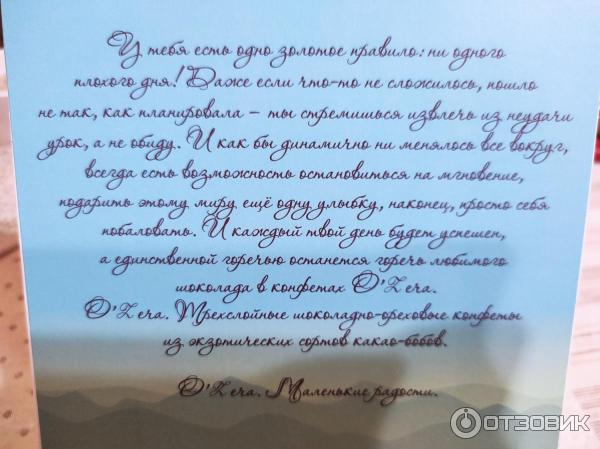 У тебя есть одно золотое правило: ни одного
плохого дня! Даже если что-то не сложилось, пошло
не так, как планировала – ты стремишься извлечь из неудачи
урок, а не обиду. И как бы динамично ни менялось все вокруг,
всегда есть возможность остановиться на мгновение,
подарить этому миру ещё одну улыбку, наконец, просто себя
побаловать. И каждый твой день будет успешен,
а единственной горечью останется горечь любимого
шоколада в конфетах O'Zera.
O'Zera. Трехслойные шоколадно-ореховые конфеты
из экзотических сортов какао-бобов.
O'Zera. Маленькие радости.
ОТЗОВИК